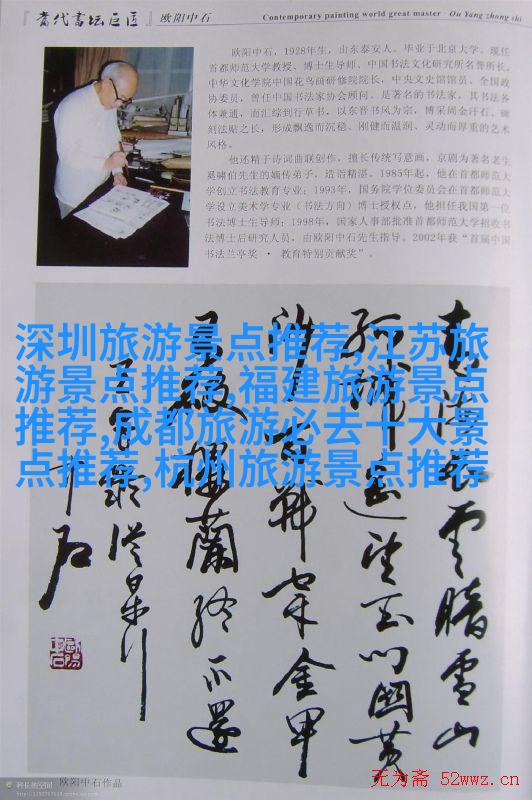 『当代书坛巨匠』欧阳中石
Contemporary painting world great master · Ou Yang zhong shi
欧阳中石，1928年生，山东泰安人。毕业于北京大学。现任
首都师范大学教授、博士生导师、中国书法文化研究所名誉所长，
中华文化学院中国花鸟画研修院院长，中央文史馆馆员、全国政
协委员，曾任中国书法家协会顾问。是著名的书法家，其书法各
体兼通，而汇综到行草书，以东晋书风为宗，博采周金汗石、碑
刻法贴之长，形成飘逸而沉稳、刚健而温润、灵动而厚重的艺术
风格。
他还精于诗词曲联创作，擅长传统写意画，京剧为著名老生
奚啸伯先生的嫡传弟子，造诣精湛。1985年起，他在首都师范大
学创立书法教育专业；1993年，国务院学位委员会在首都师范大
学设立美术学专业（书法方向）博士授权点，他担任我国第一位
书法博士生导师；1998年，国家人事部批准首都师范大学招收书
法博士后研究人员，由欧阳中石先生指导。2002年获“首届中国
书法兰亭奖 · 教育特别贡献奖”。
深圳旅游景点推荐,江苏旅
游景点推荐,福建旅游景点
推荐,成都旅游必去十大景
点推荐,杭州旅游景点推荐
青海长云暗雪山
孤城遥望玉门关黄
沙百战穿金甲
不破楼兰终不还
王昌龄从军行
中石
欧阳中石作品
无为斋 52wwz.cn